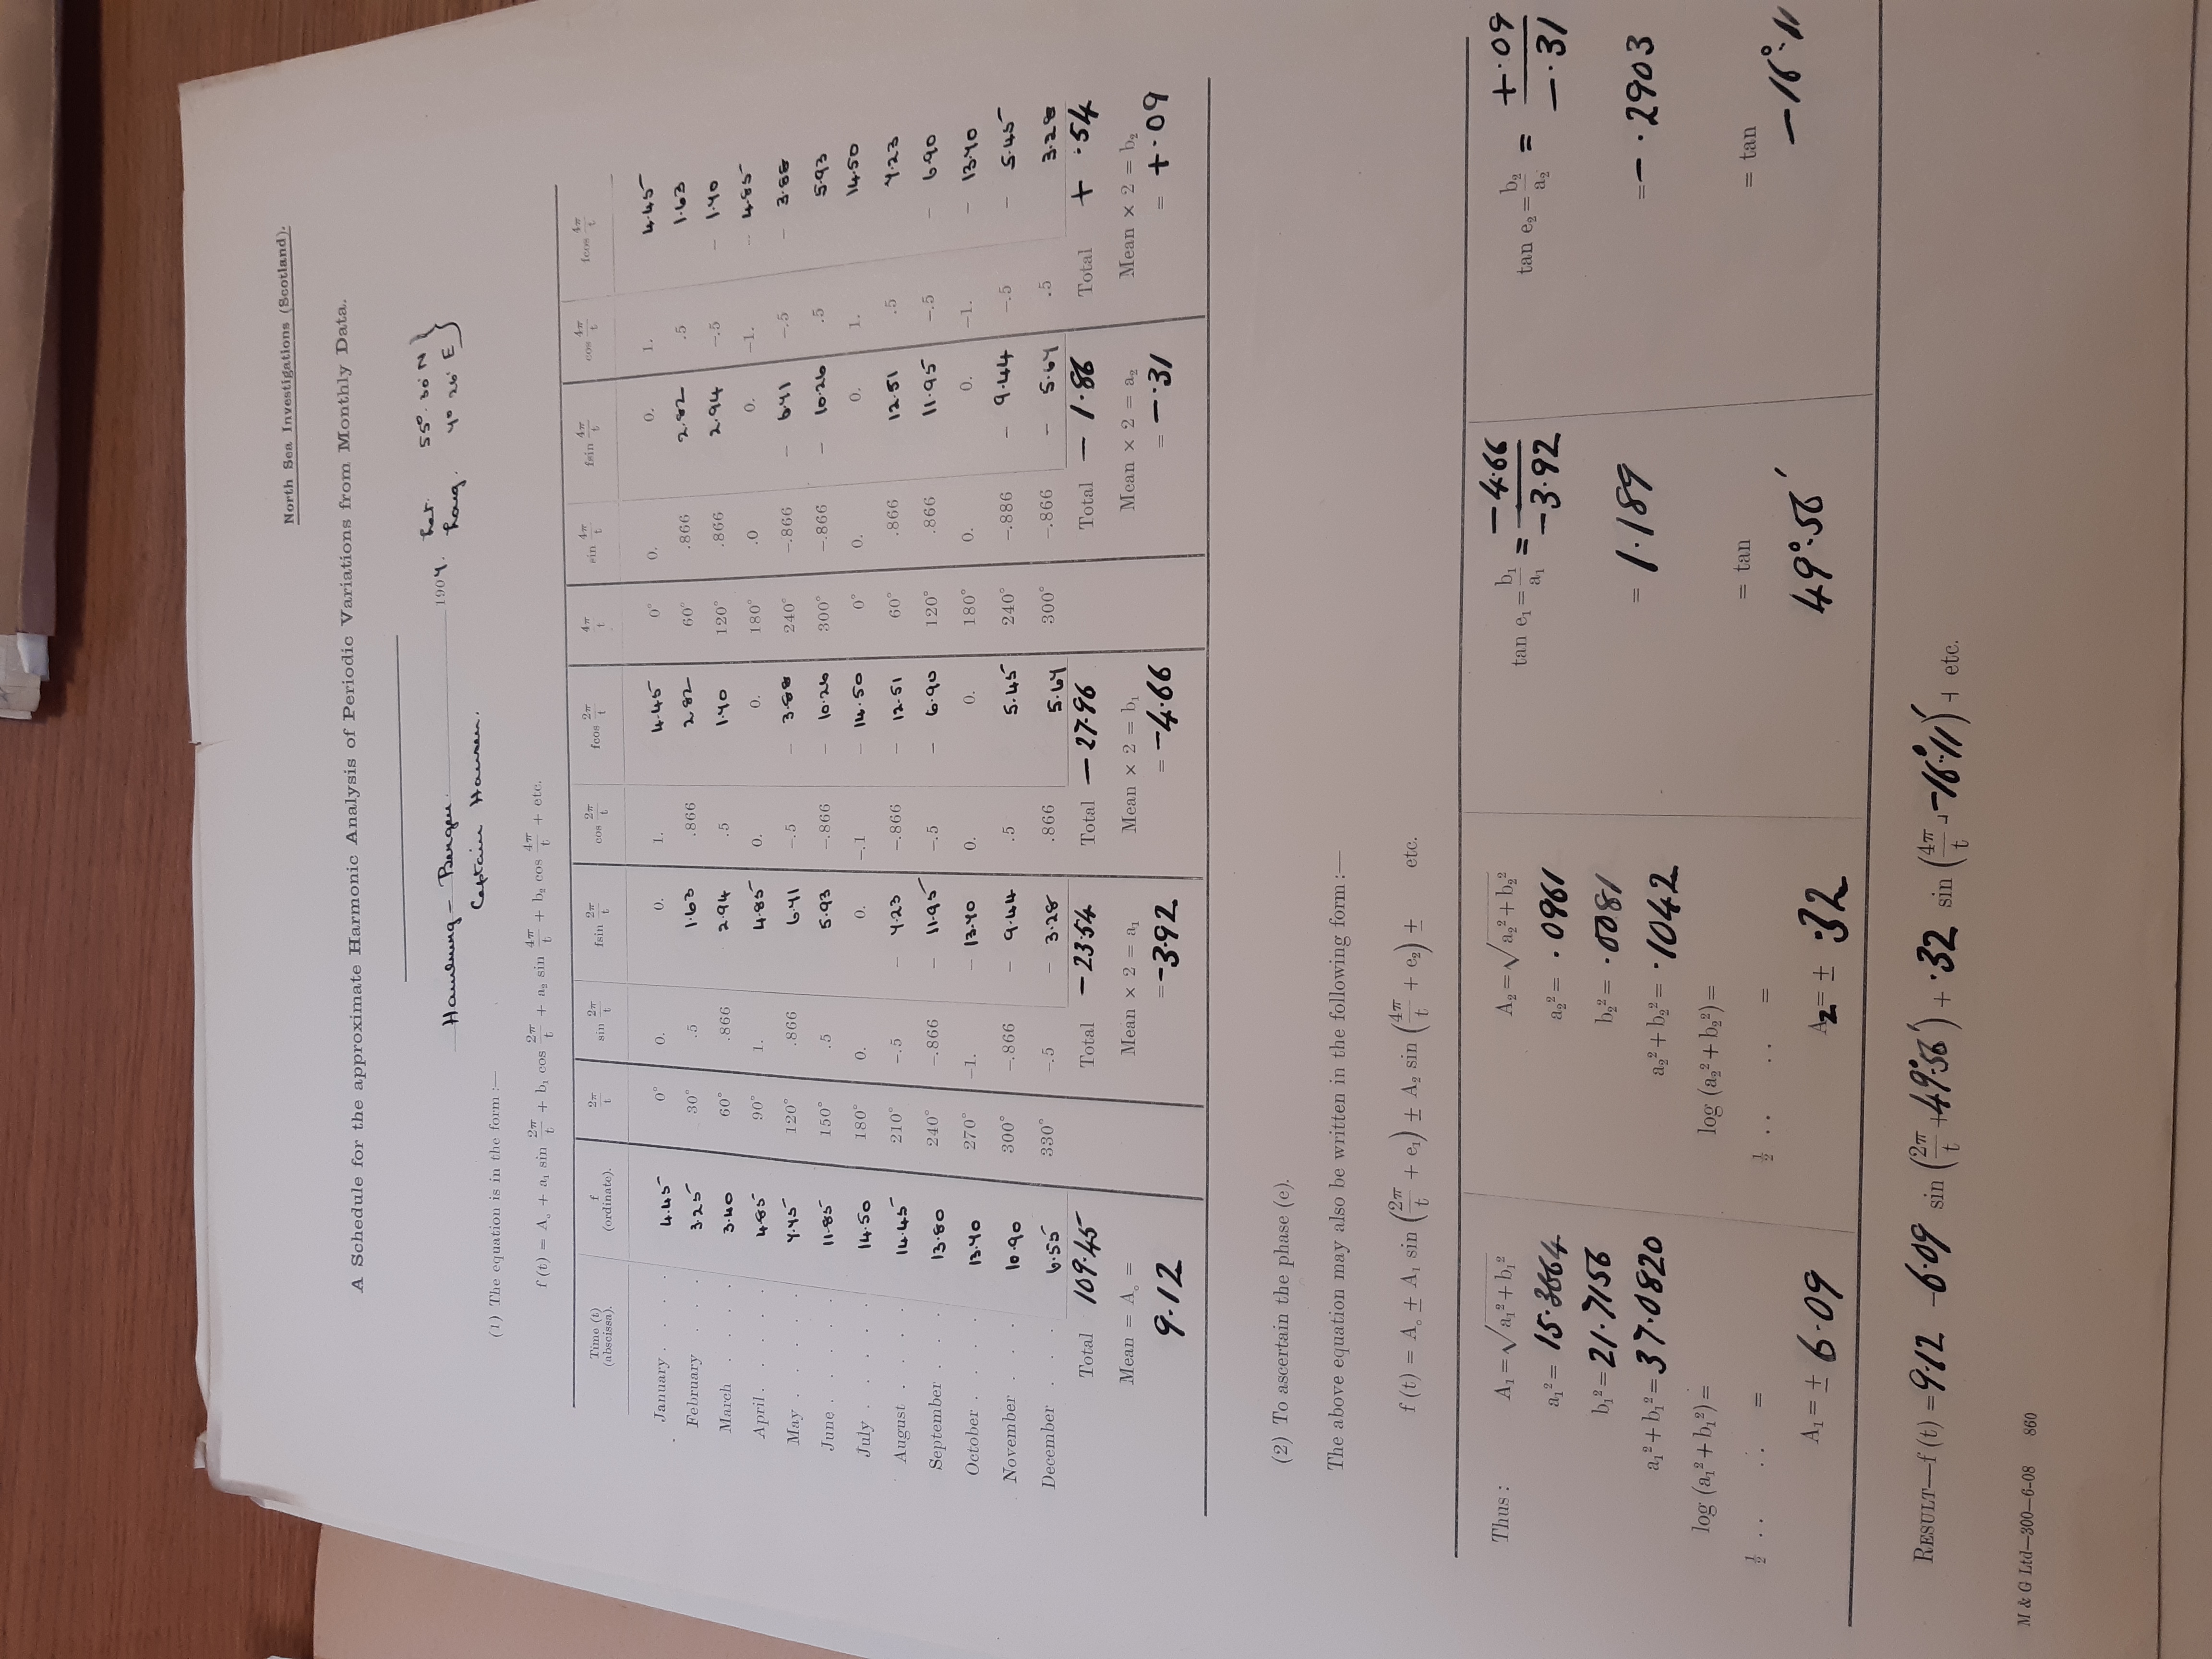 North Sea Investigations (Scotland).
A Schedule for the approximate Harmonic Analysis of Periodic Variations from Monthly Data.
Hamburg – Bergen. 1907. Lat. 55° 30' N
Captain Hansen. Long. 7° 26' E
(1) The equation is in the form :—
f (t) = A₀ + a₁ sin 2π/t + b₁ cos 2π/t + a₂ sin 4π/t + b₂ cos 4π/t + etc.
Time (t) (abscissa). f (ordinate). 2π/t sin 2π/t fsin 2π/t cos 2π/t fcos 2π/t 4π/t sin 4π/t fsin 4π/t cos 4π/t fcos 4π/t
January . . . . 4.45 0° 0. 0. 1. 4.45 0° 0. 0. 1. 4.45
February . . . 3.25 30° .5 1.63 .866 2.82 60° .866 2.82 .5 1.63
March . . . . 3.40 60° .866 2.94 .5 1.70 120° .866 2.94 –.5 – 1.70
April . . . . . 4.85 90° 1. 4.85 0. 0. 180° .0 0. –1. – 4.85
May . . . . . 7.75 120° .866 6.71 –.5 – 3.88 240° –.866 – 6.71 –.5 – 3.88
June . . . . . 11.85 150° .5 5.93 –.866 – 10.26 300° –.866 – 10.26 .5 5.93
July . . . . . 14.50 180° 0. 0. –.1 – 14.50 0° 0. 0. 1. 14.50
August . . . . 14.45 210° –.5 – 7.23 –.866 – 12.51 60° .866 12.51 .5 7.23
September . . . 13.80 240° –.866 – 11.95 –.5 – 6.90 120° .866 11.95 –.5 – 6.90
October . . . . 13.70 270° –1. – 13.70 0. 0. 180° 0. 0. –1. – 13.70
November . . . 10.90 300° –.866 – 9.44 .5 5.45 240° –.886 – 9.44 –.5 – 5.45
December . . . 6.55 330° –.5 – 3.28 .866 5.67 300° –.866 – 5.67 .5 3.28
Total 109.45 Total – 23.54 Total – 27.96 Total – 1.86 Total + .54
Mean = A₀ = Mean × 2 = a₁ Mean × 2 = b₁ Mean × 2 = a₂ Mean × 2 = b₂
9.12 = –3.92 = –4.66 = –.31 = +.09
(2) To ascertain the phase (e).
The above equation may also be written in the following form :—
f (t) = A₀ ± A₁ sin (2π/t + e₁) ± A₂ sin (4π/t + e₂) ± etc.
Thus : A₁ = √a₁² + b₁² A₂ = √a₂² + b₂² tan e₁ = b₁/a₁ = –4.66/–3.92 tan e₂ = b₂/a₂ = +.09/–.31
a₁² = 15.3664 a₂² = .0961
b₁² = 21.7156 b₂² = .0081
a₁² + b₁² = 37.0820 a₂² + b₂² = .1042 = 1.189 = – .2903
log (a₁² + b₁²) = log (a₂² + b₂²) =
½ . . . . = ½ . . . . = = tan = tan
A₁ = ± 6.09 A₂ = ± .32 49°.56' –16°.11
Result—f (t) = 9.12 –6.09 sin (2π/t + 49°.56') + .32 sin (4π/t + –16°.11') + etc.
M & G Ltd—300—6-08 860